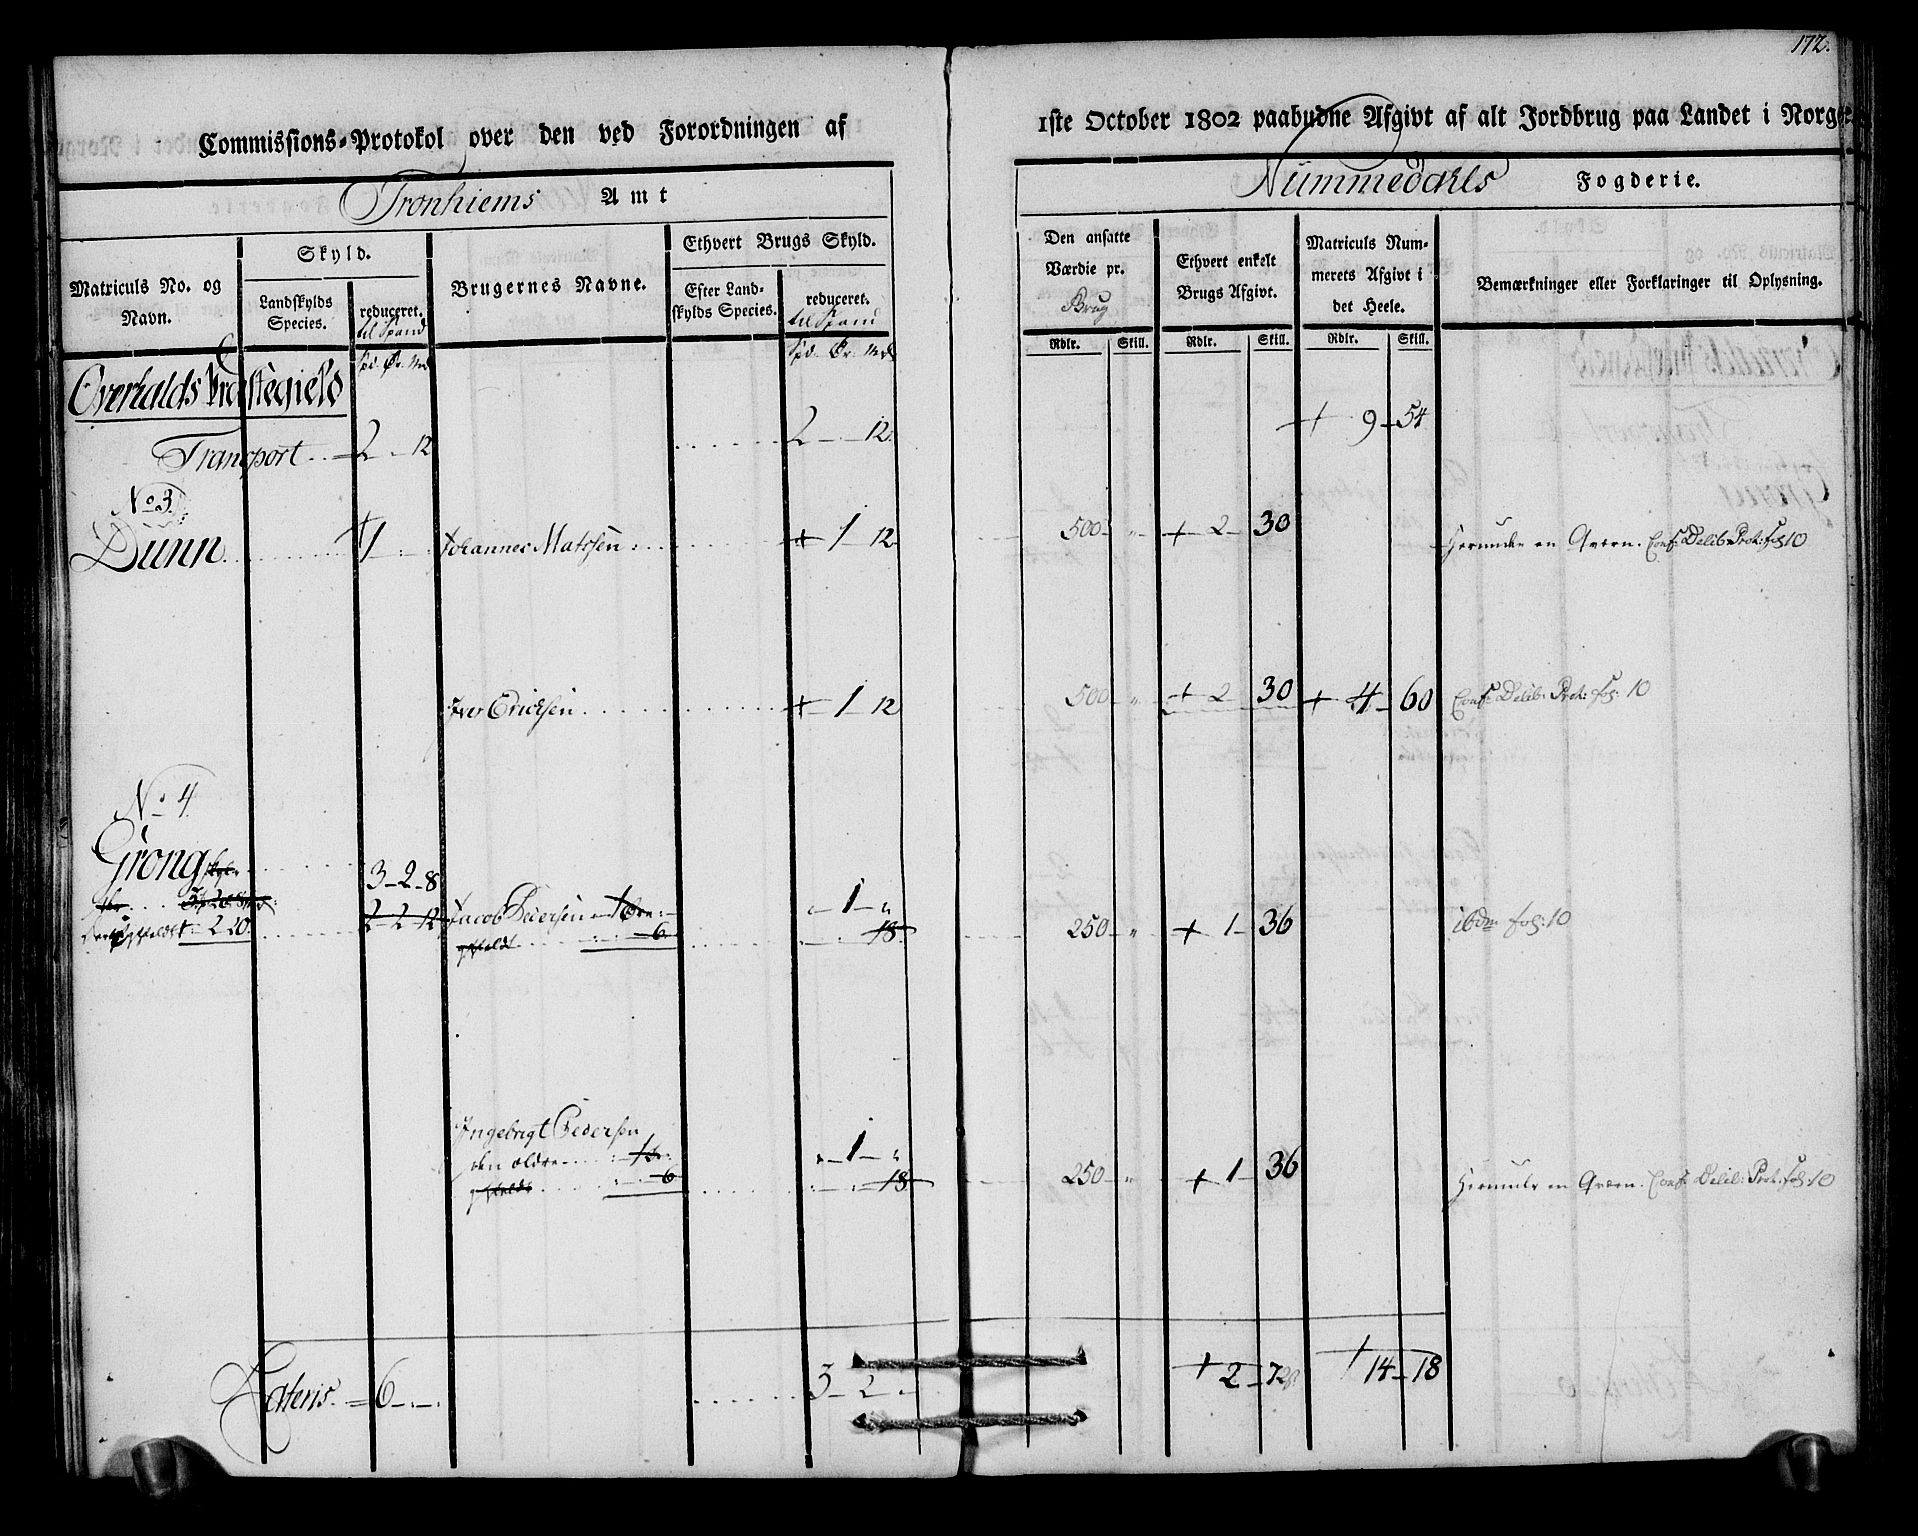 172.
Commissions-Protokol over den ved Forordningen af
1ste October 1802 paabudne Afgivt af alt Jordbrug paa Landet i Norge
Tronhiems Amt
Nummedahls Fogderie.
Matriculs No. og Navn.
Skyld.
Landskylds Species.
reduceret. til Spand
Brugernes Navne.
Ethvert Brugs Skyld.
Efter Landskylds Species.
reduceret. til Spand
Den ansatte Værdie pr. Brug
Ethvert enkelt Brugs Afgivt.
Matriculs Nummerets Afgivt i det Heele.
Bemærkninger eller Forklaringer til Oplysning.
Rdlr. Skill. Rdlr. Skill. Rdlr. Skill.
Spd. Ør. Mrk Spd. Ør. Mrk
Overhalds Præstegield
Transport 2 - 12 2 - 12 + 9 - 54
No 3.
Dunn 1 Johannes Matssen + 1 - 12 500 - " + 2 - 30 Herunder en Qværn. Conf: Delib: Prot: fol 10
Iver Ericksen + 1 12 500 " + 2 30 + 4 - 60 Conf: Delib: Prot: fol: 10
No 4.
Grong
3 - 2 - 8
2 - 2 - 12 Jacob Pedersen 1 Øre - 1 - " 250 - " + 1 - 36 ibdm fol: 10
2 20 6 18
Ingebrigt Pedersen
den ældre 1 Ør: - 1 - "
6 18 250 " + 1 - 36 Herunder en Qværn. Conf: Delib: Prot: fol: 10
Lateris 6 3 - 2 - + 2 - 72 + 14 - 18